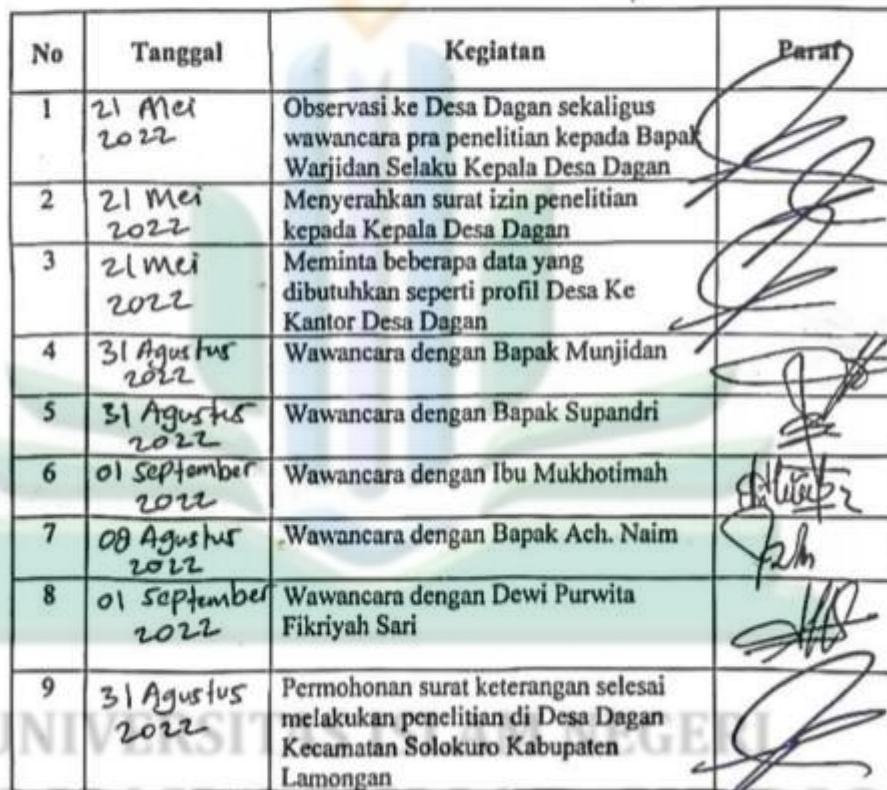 No Tanggal Kegiatan Paraf
1 21 Mei 2022 Observasi ke Desa Dagan sekaligus
wawancara pra penelitian kepada Bapak
Warjidan Selaku Kepala Desa Dagan
2 21 Mei 2022 Menyerahkan surat izin penelitian
kepada Kepala Desa Dagan
3 21 Mei 2022 Meminta beberapa data yang
dibutuhkan seperti profil Desa Ke
Kantor Desa Dagan
4 31 Agustus 2022 Wawancara dengan Bapak Munjidan
5 31 Agustus 2022 Wawancara dengan Bapak Supandri
6 01 September 2022 Wawancara dengan Ibu Mukhotimah
7 08 Agustus 2022 Wawancara dengan Bapak Ach. Naim
8 01 September 2022 Wawancara dengan Dewi Purwita
Fikriyah Sari
9 31 Agustus 2022 Permohonan surat keterangan selesai
melakukan penelitian di Desa Dagan
Kecamatan Solokuro Kabupaten
Lamongan
UNIVERSITAS ISLAM NEGERI